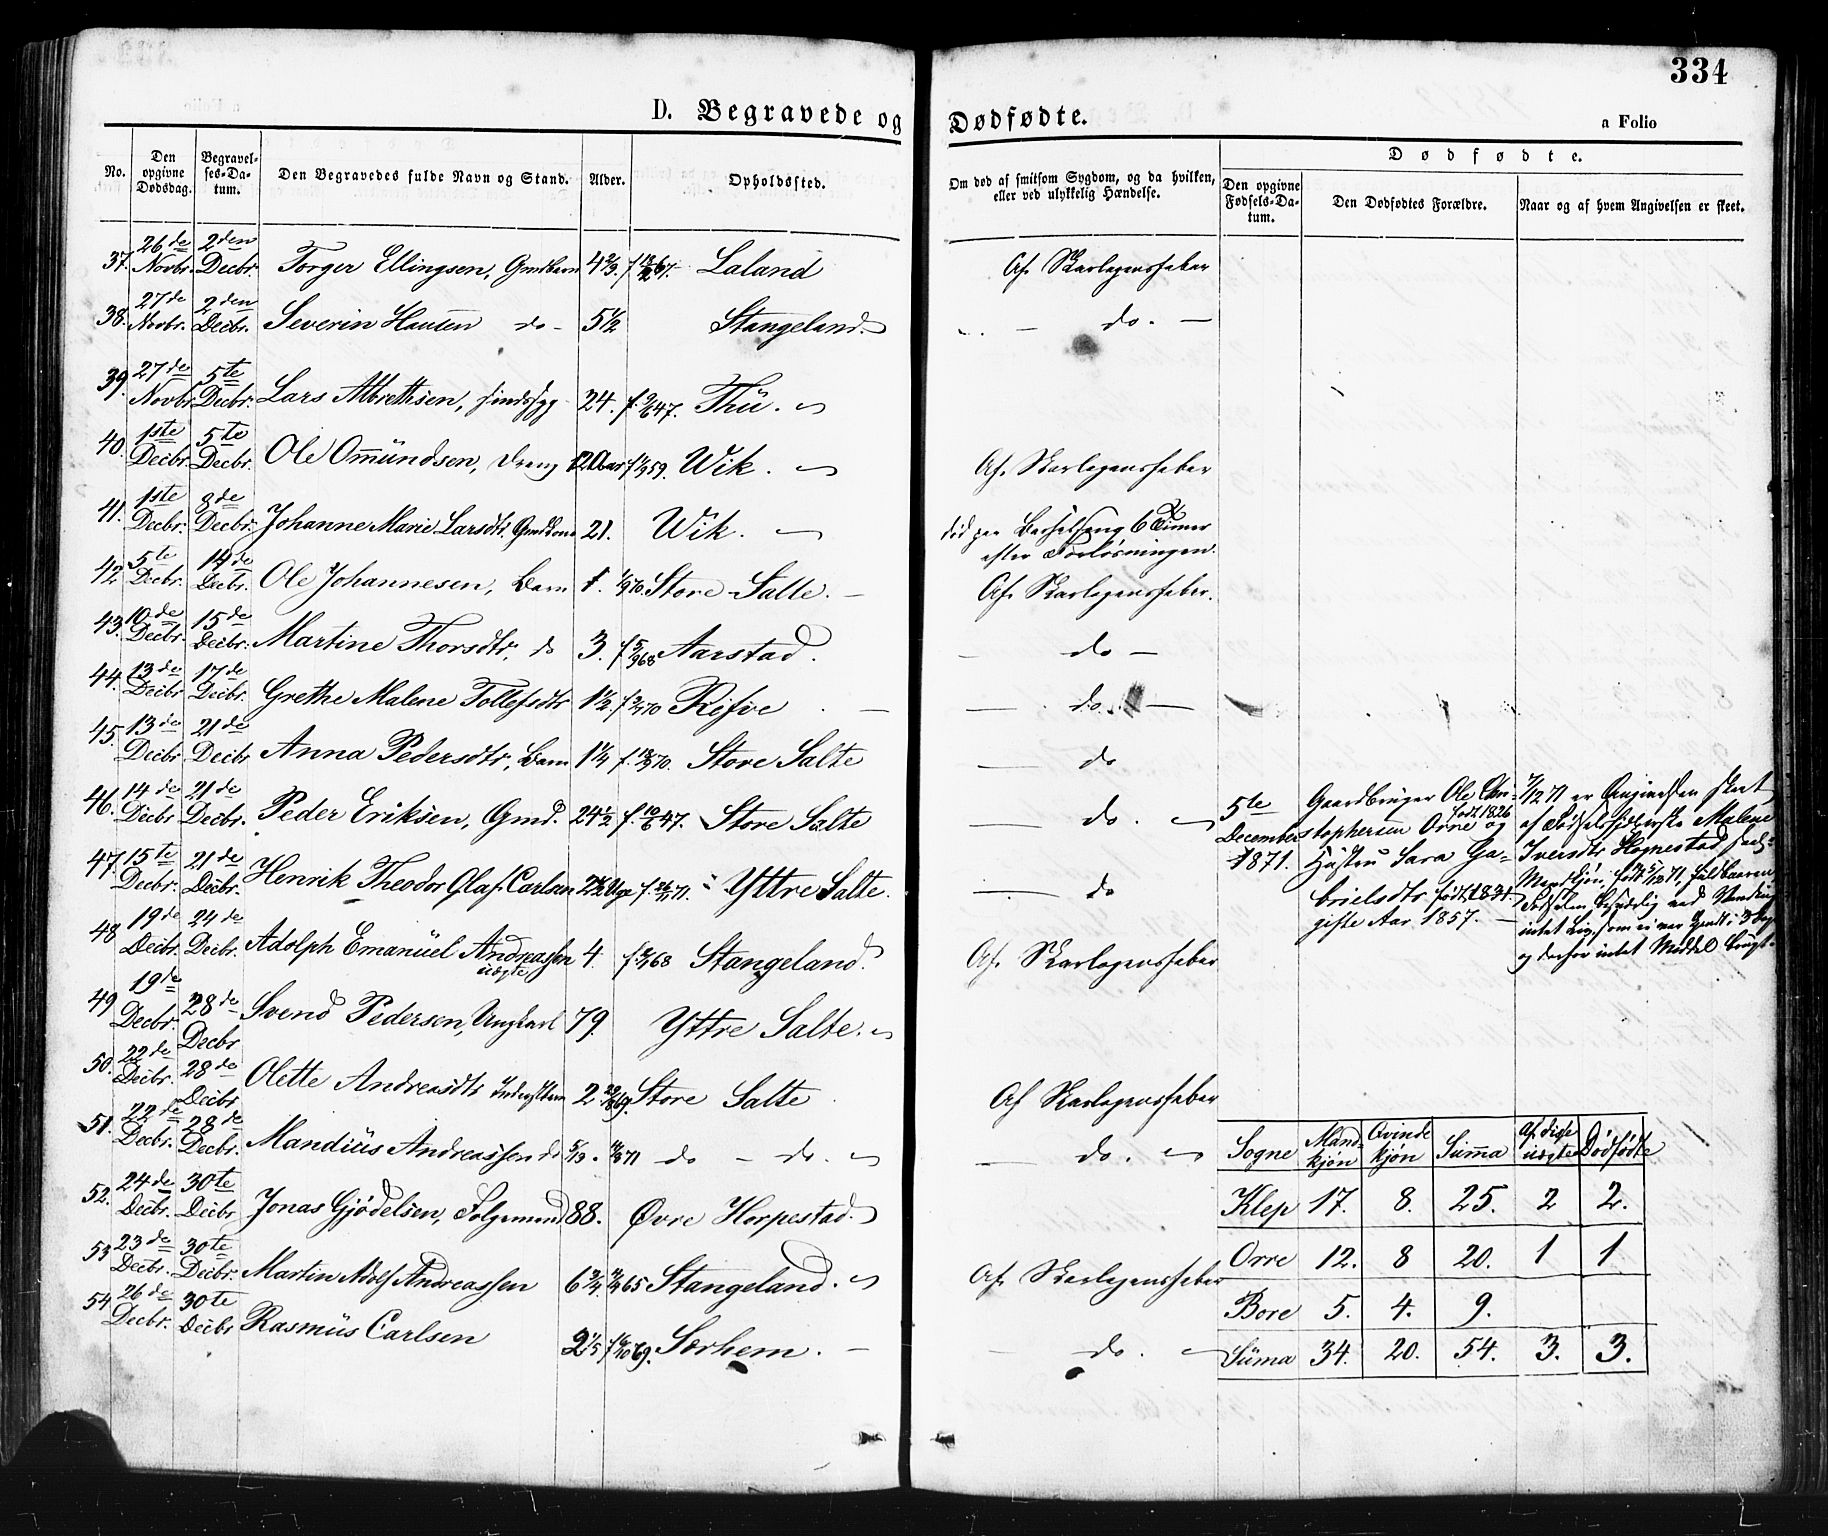 334
D. Begravede og Dødfødte.
a Folio
No.
Den opgivne Dødsdag.
Begravelses-Datum.
Den Begravedes fulde Navn og Stand.
Alder.
Opholdssted.
Om død af smitsom Sygdom, og da hvilken, eller ved ulykkelig Hændelse.
Dødfødte.
Den opgivne Fødsels-Datum.
Den Dødfødtes Forældre.
Naar og af hvem Angivelsen er skeet.
37. 26de Novbr. 2den Decbr. Torger Ellingsen, Laland Af Skarlagensfeber
38. 27de Novbr. 2den Decbr. Severin Hansen do - 5 1/2 Stangeland. — do. —
39. 27de Novbr. 5te Decbr. Lars Albrethsen, sindssyg 24. Thu.
40. 1ste Decbr. 5te Decbr. Ole Omundsen, Dreng 12 Aar Wik. Af Skarlagensfeber
41. 1ste Decbr. 8de Decbr. Johanne Marie Larsdtr. 21. Wik. død paa Barselseng 6 Timer
efter Forløsningen.
42 5te Decbr. 14de Decbr. Ole Johannesen, Barn 1. Store-Salte. Af Skarlagensfeber.
43. 10de Decbr. 15de Decbr. Martine Thorsdtr. do 3. f 5/9 68 Aarstad. — do —
44. 13de Decbr 17de Decbr. Grethe Malene Tollefsdtr 1 1/2. Refve — do. —
45. 13de Decbr 21de Decbr Anna Pedersdtr, Barn 1 1/4 Store Salte — do
46. 14de Decbr 21de Decbr. Peder Eriksen, Gmd. 24 1/2 f. 10/6 47. Store Salte — do.
47. 15te Decbr. 21de Decbr. Henrik Theodor Olaf Carlsen Uge Yttre Salte. — do
48 19de Decbr. 24de Decbr. Adolph Emanuel Andreassen
uægte 4. Stangeland. Af Skarlagensfeber
49 19de Decbr. 28de Decbr Svend Pedersen, Ungkarl 79. Yttre Salte.
50. 22de Decbr. 28de Decbr Olette Andreasdtr 2 Store Salte Af Skarlagensfeber
51. 22de Decbr. 28de Decbr. Mandius Andreassen do do — do. — do.
52. 24de Decbr. 30te Decbr Jonas Gjødelsen, 88. Øvre Horpestad.
53 23de Decbr. 30te Decbr. Martin Adolf Andreassen 6 3/4 Stangeland. Af Skarlagensfeber
54 26de Decbr. 30te Decbr Rasmus Carlsen 2 1/5 Sørhem. — do.
5te
December
1871.
Gaardbruger Ole Chri-
født 1826
stophersen Orre og
Hustru Sara Ga-
brielsdtr. født 1831.
gifte Aar 1857.
7/12 71 er Angivelsen skeet
af Malene
Iversdtr Hognestad
Mandkjøn, født 5/12 71, fuldbaaren
intet Liv, som ei var kjendt i 3 Dage
og derfor intet Middel brugt.
Sogne Mand- Qvinde Summa Af disse Dødfødte
kjøn kjøn uægte
Klep 17. 8. 25. 2 2.
Orre 12. 8 20. 1 1
Bore 5. 4. 9.
Suma 34. 20. 54. 3. 3.